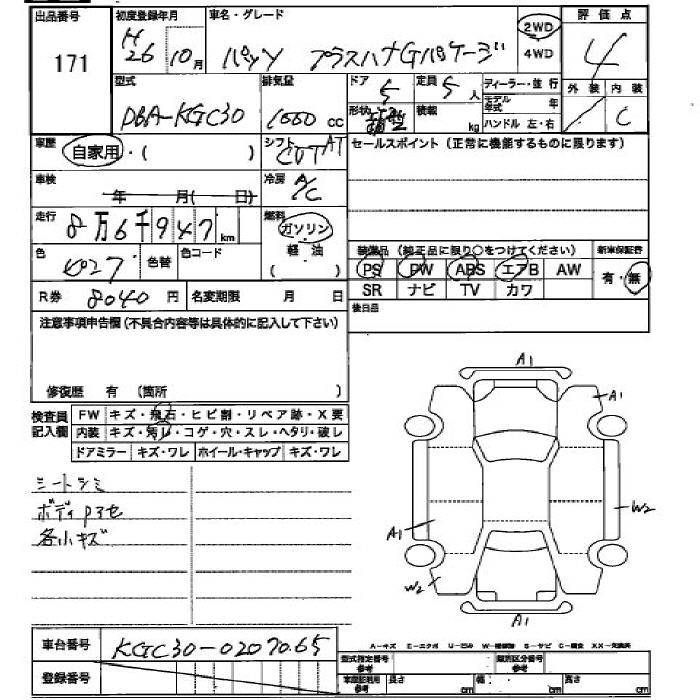 出品番号 初度登録年月 車名・グレード 評価点
171 H26 10月 パッソ プラスハナGパケージ 2WD 4WD 4
型式 排気量 ドア 定員 ディーラー・並行 外装 内装
DBA-KGC30 1000 cc 5 5人 モデル年式 年 C
形状 積載 kg ハンドル 左・右
車歴 自家用・( ) シフト CVT AT セールスポイント(正常に機能するものに限ります)
車検 年 月( 日) 冷房 A/C
走行 8万6千947 km 燃料 ガソリン
軽油
( )
色 色替 色コード 装備品(純正品に限り○をつけてください) 新車保証書
PS PW ABS エアB AW 有・無
R券 8040円 名変期限 月 日 SR ナビ TV カワ
注意事項申告欄(不具合内容等は具体的に記入して下さい) 後日品
修復歴 有 (箇所 )
検査員記入欄 FW キズ・飛石・ヒビ割・リペア跡・X要
内装 キズ・汚レ・コゲ・穴・スレ・ヘタリ・破レ
ドアミラー キズ・ワレ ホイール・キャップ キズ・ワレ
シートシミ
各小キズ
A1
A1
W2
A1
W2
A1
車台番号 KGC30-0207065
登録番号
A-キズ E-エクボ U-凹ミ S-サビ XX-交換済
型式指定番号 参考 類別区分番号 参考
参考 長さ cm 幅 cm 高さ cm